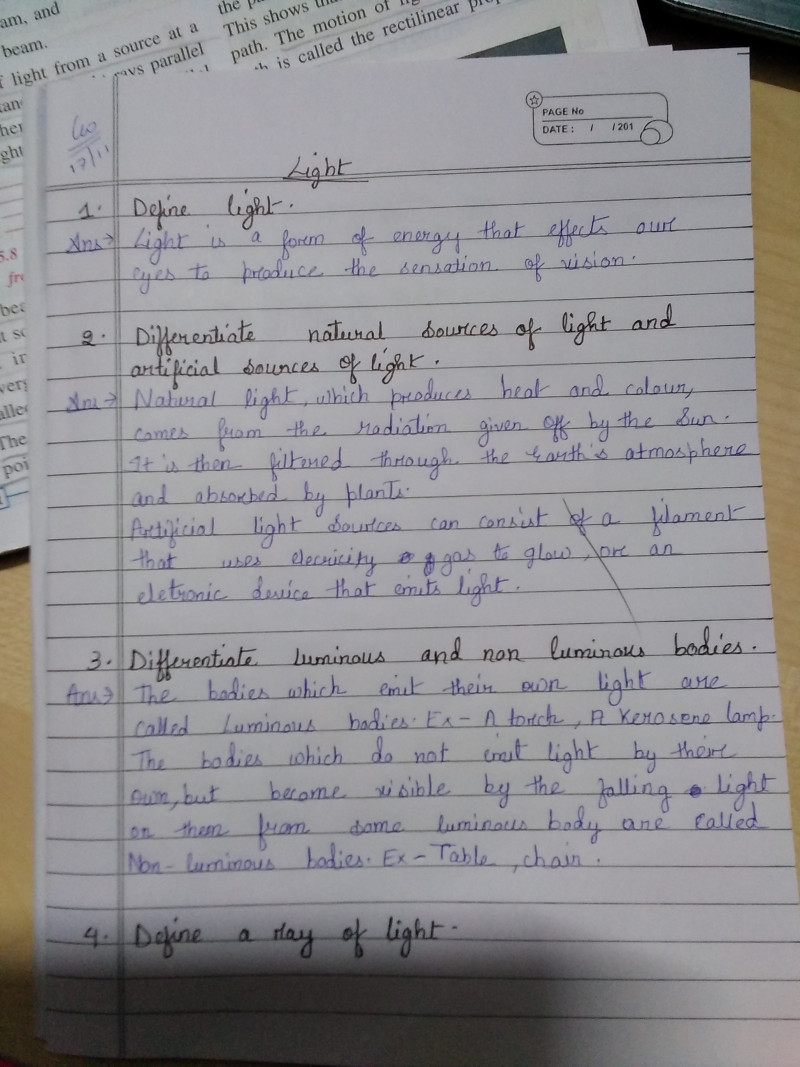 am, and
beam.
light from a source at a
rays parallel
the p
This shows tha
path. The motion of
is called the rectilinear pro
PAGE No
DATE : / /201
CW
17/11
Light
1. Define light.
Ans→ Light is a form of energy that effects our
eyes to produce the sensation of vision.
2. Differentiate natural sources of light and
artificial sources of light.
Ans→ Natural light, which produces heat and colour,
comes from the radiation given off by the Sun.
It is then filtered through the Earth's atmosphere
and absorbed by plants.
Artificial light sources can consist of a filament
that uses elecricity gas to glow, or an
eletronic device that emits light.
3. Differentiate luminous and non luminous bodies.
Ans→ The bodies which emit their own light are
called Luminous bodies. Ex- A torch, A Kerosene lamp.
The bodies which do not emit light by their
own, but become visible by the falling light
on them from some luminous body are called
Non-luminous bodies. Ex- Table, chair.
4. Define a ray of light.
5.8
The
poi